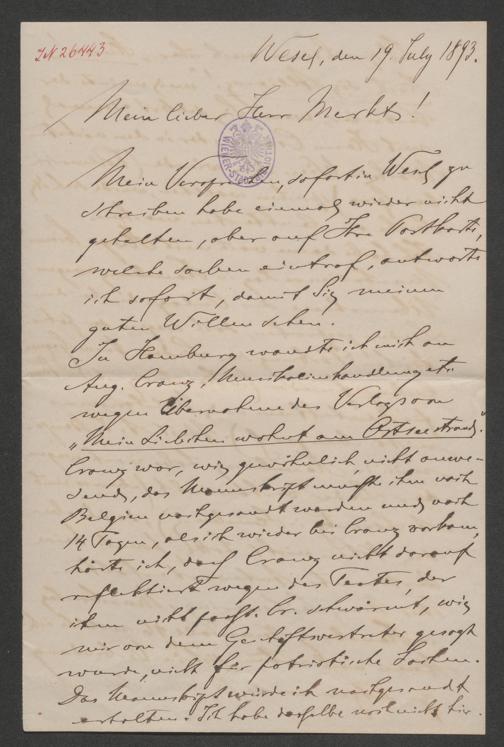 IN 26443
Wesel, den 19. July 1893.
Mein lieber Herr Merkt!
WIENER STADTBIBLIOTHEK
Mein Versprechen, sofort in Wesel zu
schreiben habe einmal wieder nicht
gehalten, aber auf Ihre Postkarte,
welche soeben eintraf, antworte
ich sofort, damit Sie meinen
guten Willen sehen.
In Hamburg wandte ich mich an
Aug. Cranz, Musikalienhandlung etc.
wegen Übernahme des Verlags von
„Mein Liebchen wohnt am Ostseestrand".
Cranz war, wie gewöhnlich, nicht anwe-
send, das Manuskript mußte ihm nach
Belgien nachgesandt werden und nach
14 Tagen, als ich wieder bei Cranz vorkam,
hörte ich, daß Cranz nicht darauf
reflektiert wegen des Textes, der
ihm nicht paßt. Cr. schwärmt, wie
mir von dem Geschäftsvertreter gesagt
wurde, nicht für patriotische Sachen.
Das Manuskript würde ich nachgesandt
erhalten. Ich habe dasselbe noch nicht hier.